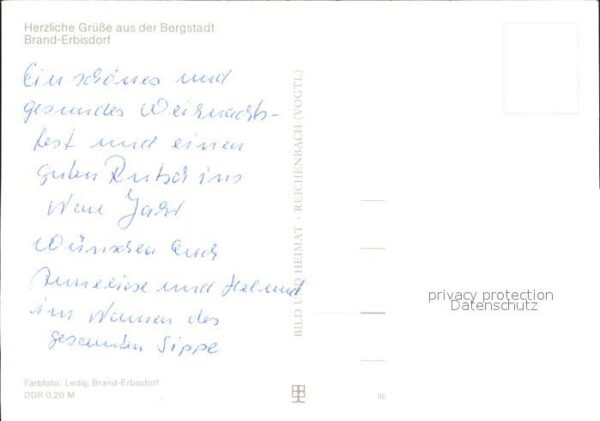 Herzliche Grüße aus der Bergstadt
Brand-Erbisdorf
Ein schönes und
gesundes Weihnachts-
fest und einen
guten Rutsch ins
Neue Jahr
wünschen Euch
Anneliese und Helmund
im Namen der
gesamten Sippe
BILD UND HEIMAT · REICHENBACH (VOGTL.)
privacy protection
Datenschutz
Farbfoto: Ledig, Brand-Erbisdorf
DDR 0,20 M